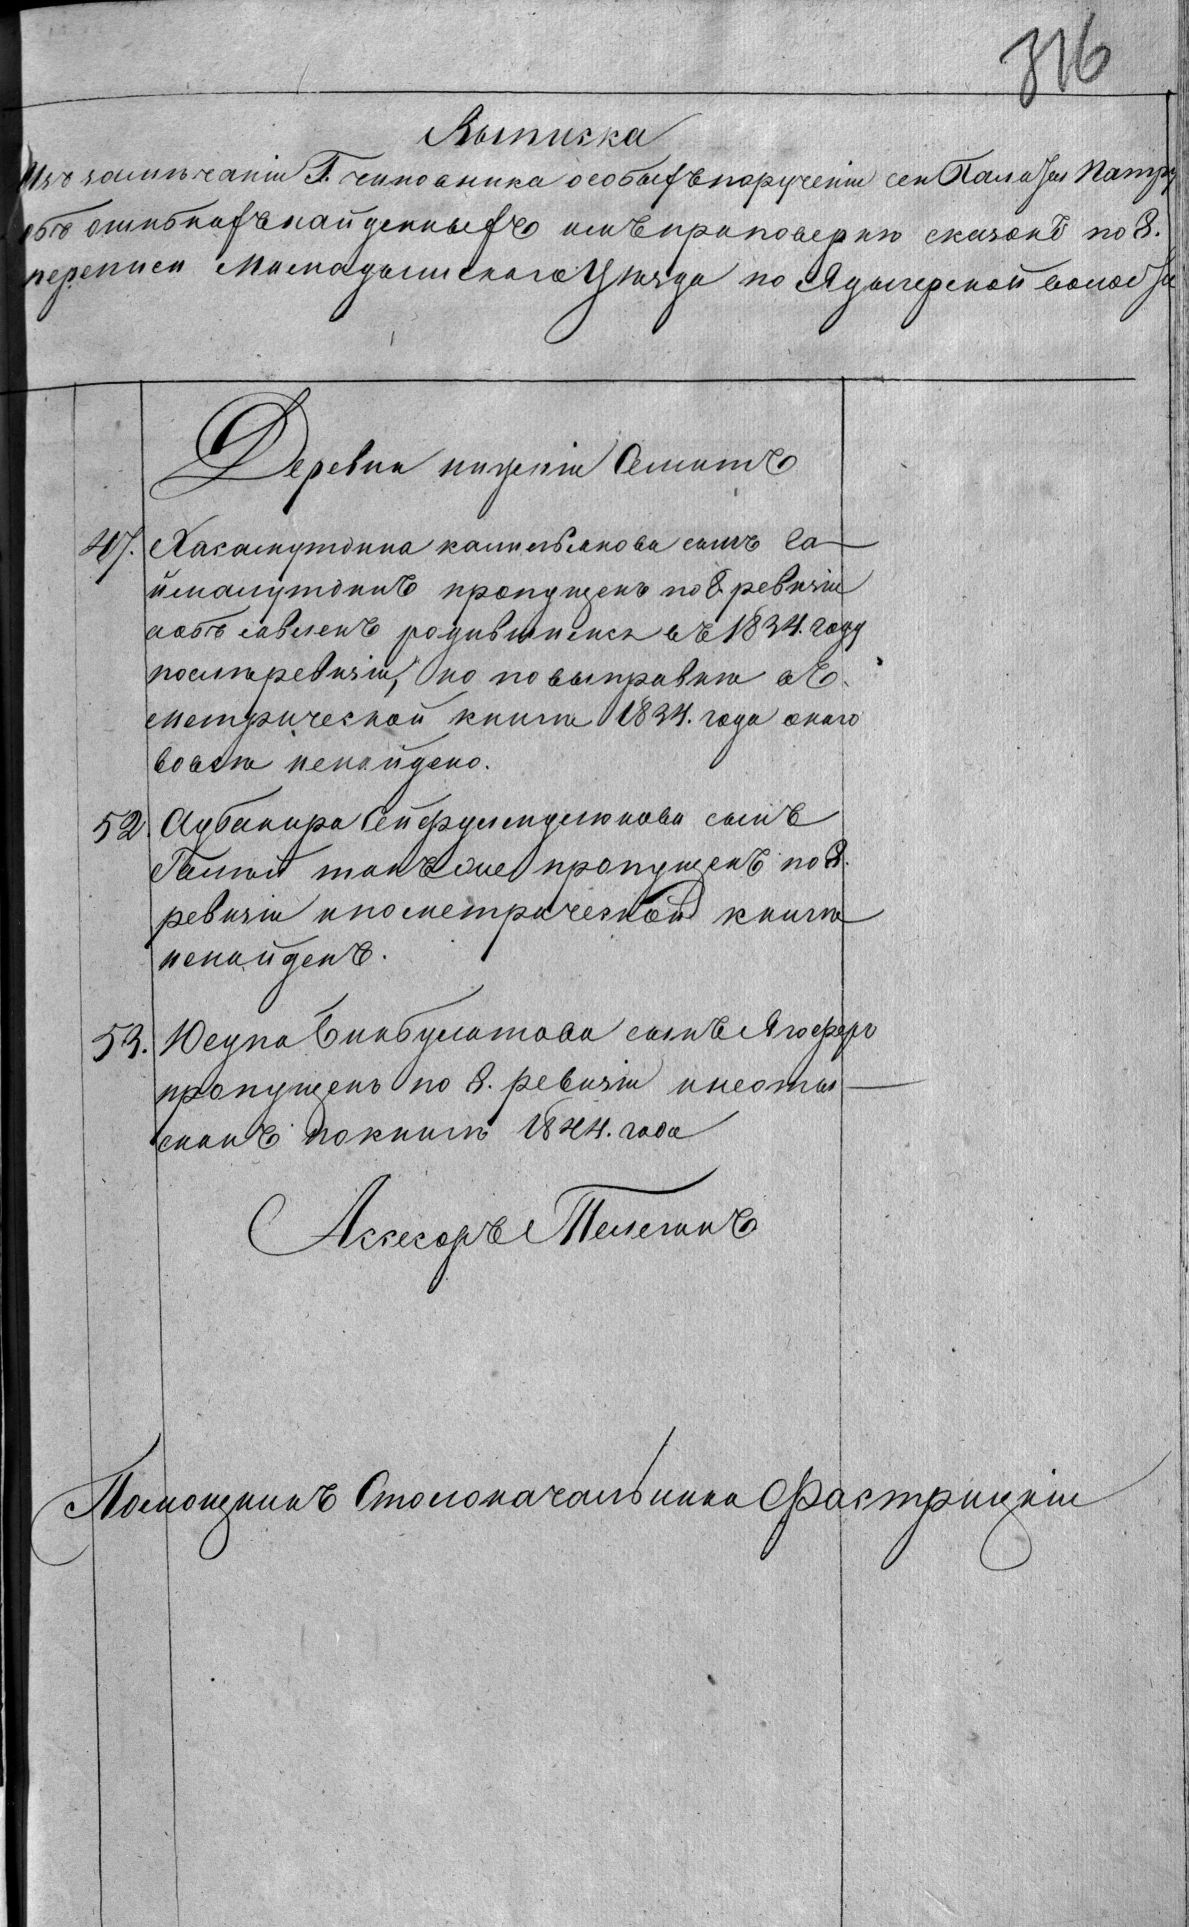 316
Выписка
Изъ замѣчаній Г. чиновника особыхъ порученій сей Палаты
объ ошибкахъ найденныхъ имъ при повѣрки сказокъ по 8.
переписи Мамадышскаго Уѣзда по Адыгерской волости
Деревни нижній Семитъ
47. Хасамутдина сынъ Са-
имамутдинъ пропущенъ по 8. ревизіи
а объявленъ родившимся въ 1834. году
послѣ ревизіи, но по выправки въ
метрической книги 1834. года онаго
вовсѣ ненайдено.
52. Сейфульмулюкова сынъ
также пропущенъ по 8.
ревизіи и по метрической книги
ненайденъ.
53. Юсупа Бикбулатова сынъ
пропущенъ по 8. ревизіи и неоты-
сканъ по книгѣ года
Ассесоръ Телегинъ
Помощникъ Столоначальника